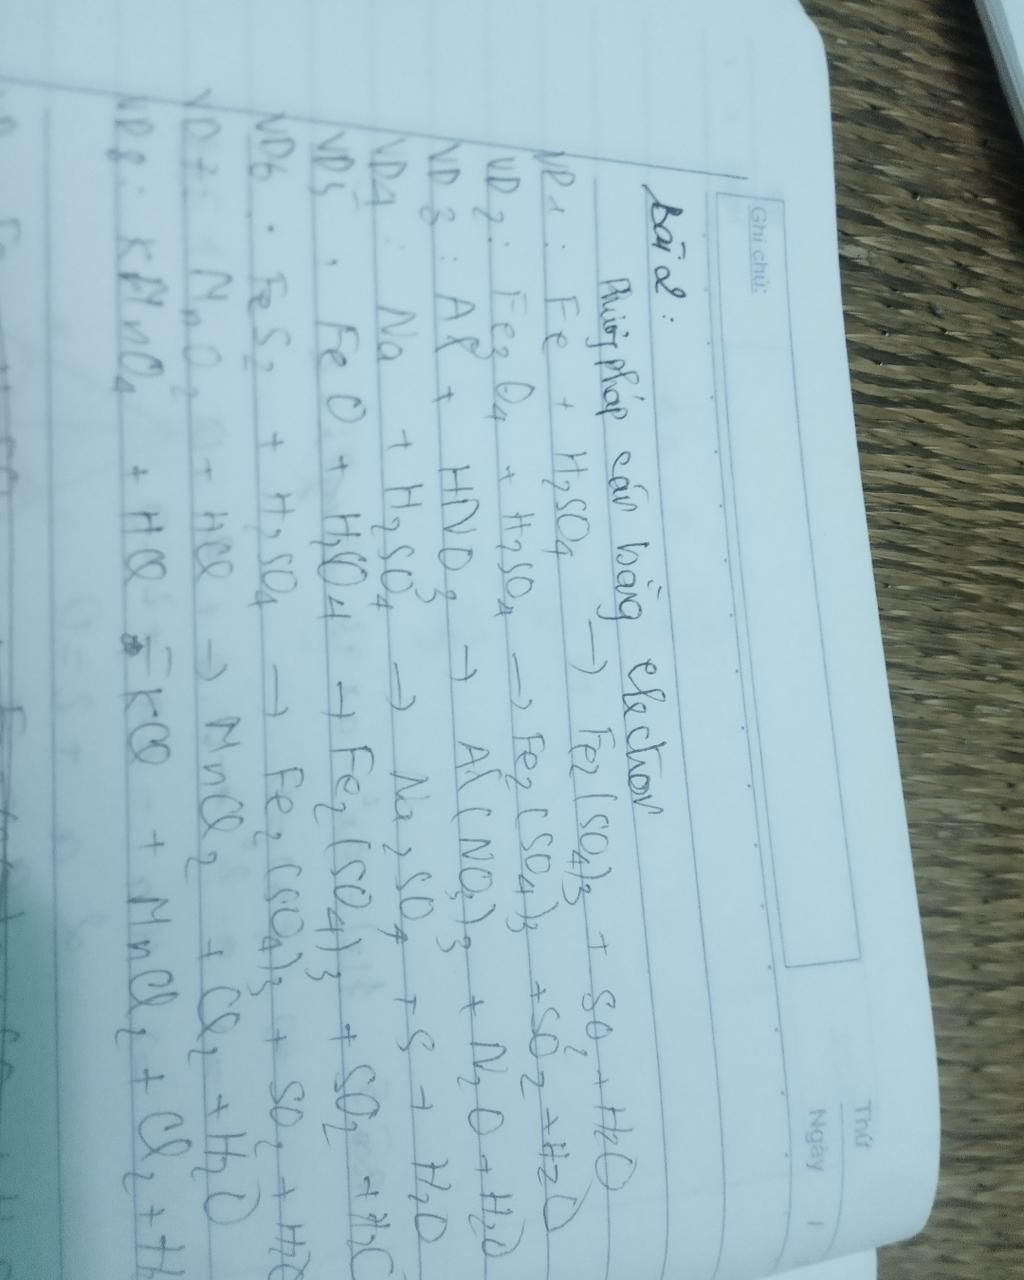 Thứ
Ngày /
Ghi chú:
bài 2:
Phương pháp cân bằng electron
VD1: Fe + H₂SO₄ → Fe₂(SO₄)₃ + SO₂ + H₂O
VD2: Fe₃O₄ + H₂SO₄ → Fe₂(SO₄)₃ + SO₂ + H₂O
VD3: Al + HNO₃ → Al(NO₃)₃ + N₂O + H₂O
VD4: Na + H₂SO₄ → Na₂SO₄ + S + H₂O
VD5: FeO + H₂SO₄ → Fe₂(SO₄)₃ + SO₂ + H₂O
VD6: FeS₂ + H₂SO₄ → Fe₂(SO₄)₃ + SO₂ + H₂O
VD7: MnO₂ + HCl → MnCl₂ + Cl₂ + H₂O
VD8: KMnO₄ + HCl → KCl + MnCl₂ + Cl₂ + H